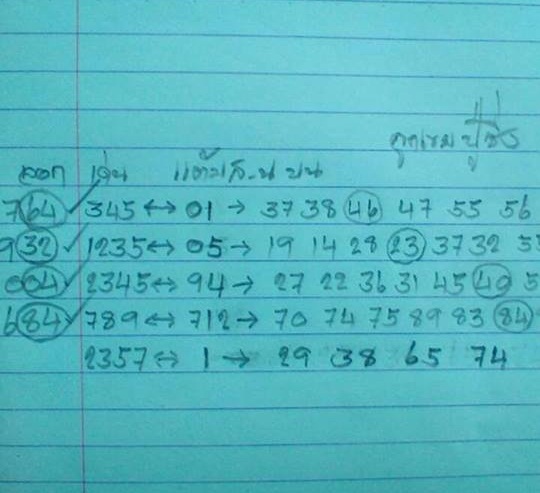 ออก เด่น แต้มล.น บน
764 345 ↔ 01 → 37 38 46 47 55 56
932 1235 ↔ 05 → 19 14 28 23 37 32
004 2345 ↔ 94 → 27 22 36 31 45 40 5
684 789 ↔ 712 → 70 74 75 89 83 84
2357 ↔ 1 → 29 38 65 74